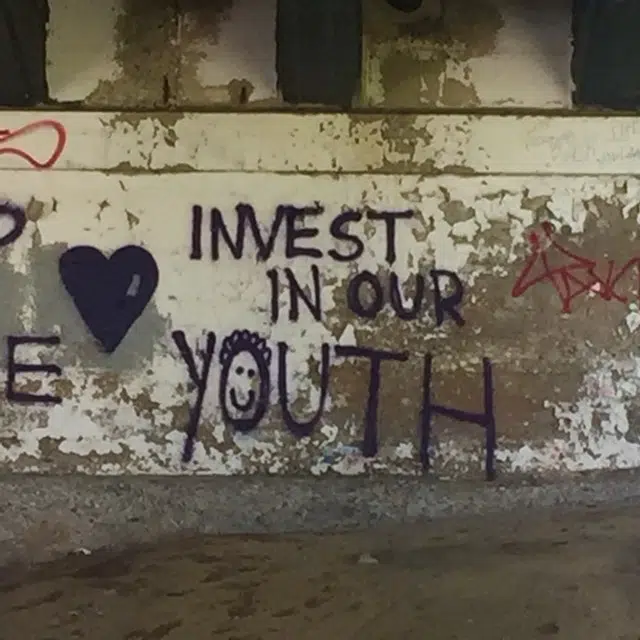 INVEST
IN OUR
YOUTH
E